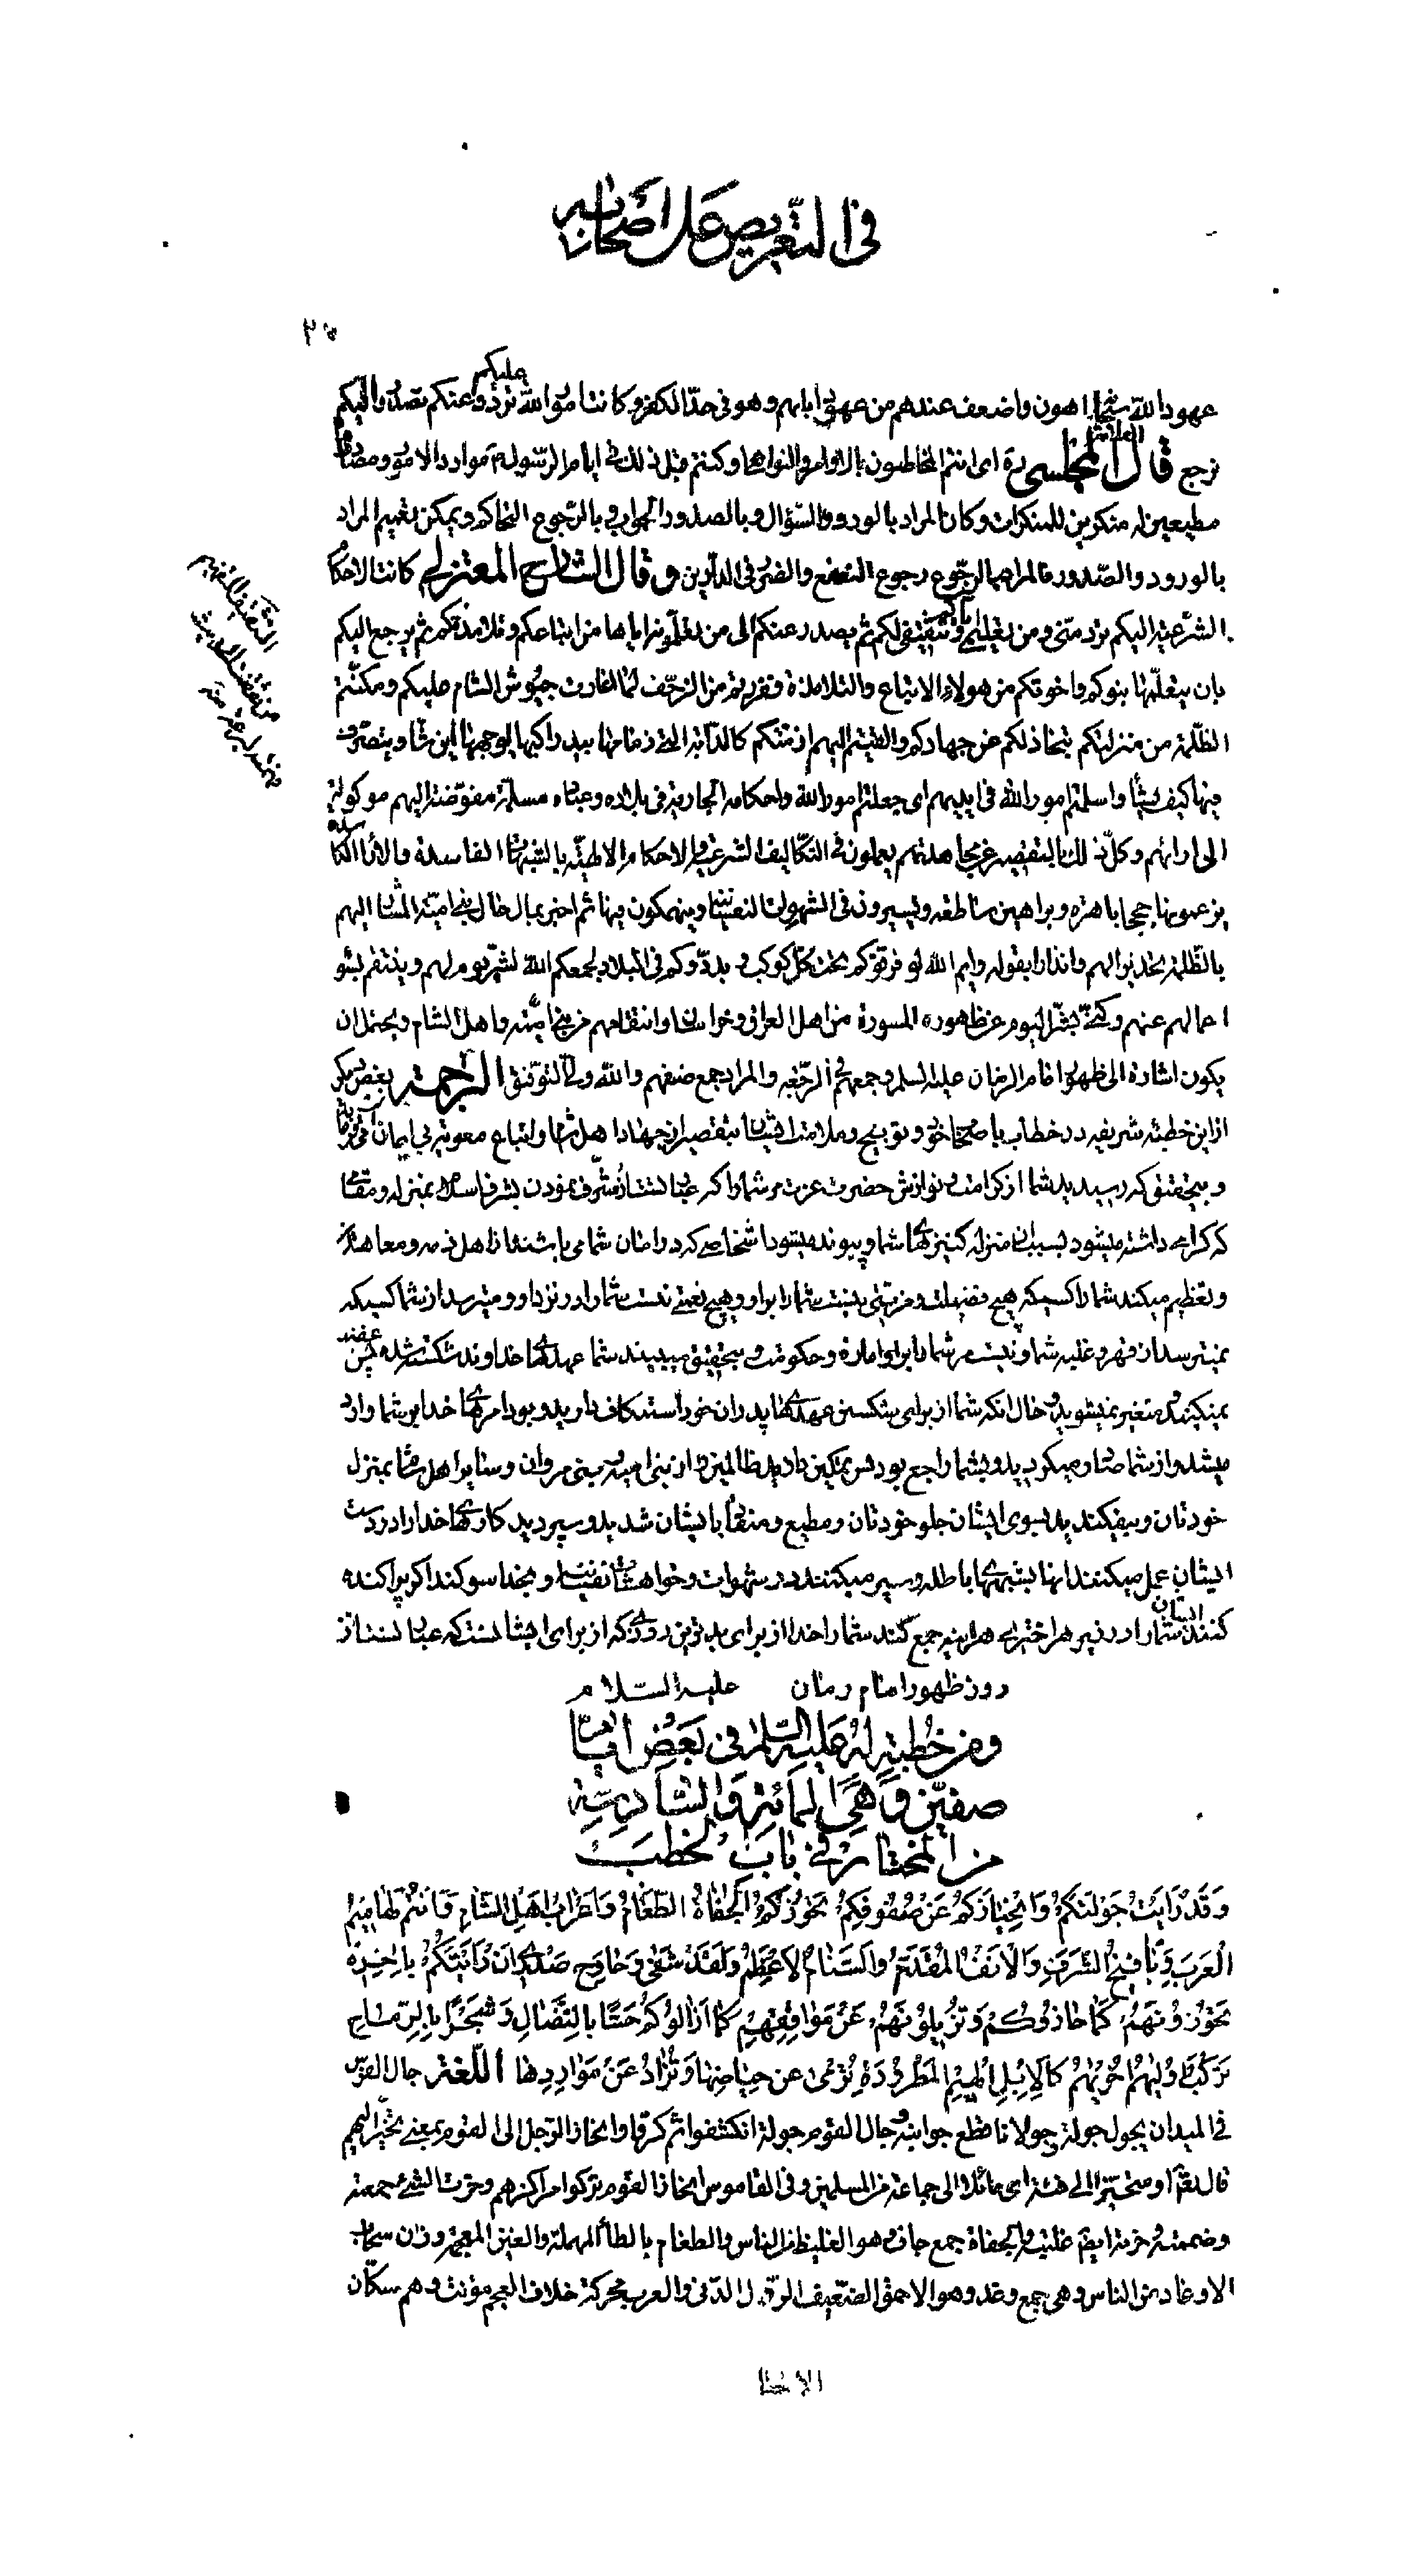 في التعريض على أصحابه
عهود الله سبحانه أهون وأضعف عندهم من عهود آبائهم وهو في حد الكفر وكانت أمور الله عليكم ترد وعنكم تصدر واليكم
ترجع قال العلامة المجلسي ره اى انتم المخاطبون بالأوامر والنواهى وكنتم قبل ذلك في ايام الرسول موارد الامور ومصادرها
مطيعين له منكرين للمنكرات وكان المراد بالورود السؤال وبالصدور الجواب وبالرجوع التحاكم ويمكن تعميم المراد
بالورود والصدور فالمراد بالرجوع رجوع النفع والضر في الدارين وقال الشارح المعتزلي كانت الاحكام
الشرعية اليكم ترد منى ومن تعليمى اياكم وتثقيفى لكم ثم يصدر عنكم الى من تعلمونه اياها من اتباعكم وتلامذتكم ثم يرجع اليكم
بان يتعلمها بنوكم واخوتكم من هولاء الاتباع والتلامذة ففررتم من الزحف لما اغارت جيوش الشام عليكم ومكنتم
الظلمة من منزلتكم بتخاذلكم عن جهادكم والقيتم اليهم ازمتكم كالدابة التى زمامها بيد راكبها يوجهها اين شاء ويتصرف
فيها كيف يشاء واسلمتم امور الله في ايديهم اى جعلتم امور الله واحكامه الجارية في بلاده وعباده مسلمة مفوضة اليهم موكولة
الى ارائهم وكل ذلك بالتقصير عن مجاهدتهم يعملون في التكاليف الشرعية والاحكام الالهية بالشبهات الفاسدة والاراء الكاسدة
يزعمونها حججا باهرة وبراهين ساطعة ويسيرون في الشهوات النفسانية وينهمكون فيها ثم اخبر بمال حال بني امية المشار اليهم
بالظلمة تحذيرا لهم وانذارا بقوله وايم الله لو فرقوكم تحت كل كوكب وبددوكم في البلاد لجمعكم الله لشر يوم لهم وينتقم بسوء
اعمالهم عنهم وكنى بشر اليوم عن ظهور المسودة من اهل العراق وخراسان وانتقامهم من بنى امية واهل الشام ويحتمل ان
يكون اشارة الى ظهور امام الزمان عليه السلم وجمعهم في الرجعة والمراد جمع صنفهم والله ولى التوفيق الترجمة بعض ديگر
از اين خطبه شريفه در خطاب باصحاب خود وتوبيخ وملامت ايشان بتقصير از جهاد اهل شام واتباع معويه بي ايمان
وبتحقيق كه رسيديد شما از كرامت ونوازش حضرت عزت مر شما را كه عبارتست از مشرف نمودن بشرف اسلام بمنزله ومقامى
كه گرامى داشته ميشود بسبب ان منزله كنيزهاى شما وپيوند ميشود اشخاصى كه در امان شما مى باشند از اهل ذمه ومعاهدان
وتعظيم ميكند شما را كسيكه هيچ فضيلت ومزيتى نيست شما را براو وهيچ نعمتى نيست شما را در نزد او وميترسد از شما كسيكه
نميترسد از قهر وغلبه شما ونيست مر شما را بر او اماره وحكومت وبتحقيق ميبينيد شما عهدهاى خداوند شكسته شده پس غضب
نميكنيد ومتغير نميشويد وحال انكه شما از براى شكستن عهدهاى پدران خود استنكاف داريد وبود امرهاى خدا بر شما وارد
ميشد واز شما صادر ميگرديد وبشما راجع بود پس تمكين داديد ظالمين را از بنى اميه وبنى مروان وساير اهل شام بمنزل
خودتان وبيفكنديد بسوى ايشان جلو خودتان ومطيع ومنقاد بايشان شديد وسپرديد كارهاى خدا را در دست
ايشان عمل ميكنند انها بشبههاى باطله وسير ميكنند در شهوات وخواهشات نفسانيه وبخدا سوگند اگر پراكنده
كنند ايشان شما را در زير هر اخترى هراينه جمع كند شما را خدا از براى بدترين روزى كه از براى ايشانست كه عبارتست از
روز ظهور امام زمان عليه السلام
ومن خطبة له عليه السلم في بعض أيام
صفين وهى المائة والسادسة
من المختار في باب الخطب
وَقَدْ رَأَيْتُ جَوْلَتَكُمْ وَانْحِيَازَكُمْ عَنْ صُفُوفِكُمْ تَحُوزُكُمُ الْجُفَاةُ الطَّغَامُ وَأَعْرَابُ أَهْلِ الشَّامِ وَأَنْتُمْ لَهَامِيمُ
الْعَرَبِ وَيَآفِيخُ الشَّرَفِ وَالْأَنْفُ الْمُقَدَّمُ وَالسَّنَامُ الْأَعْظَمُ وَلَقَدْ شَفَى وَحَاوِحَ صَدْرِي أَنْ رَأَيْتُكُمْ بِأَخَرَةٍ
تَحُوزُونَهُمْ كَمَا حَازُوكُمْ وَتُزِيلُونَهُمْ عَنْ مَوَاقِفِهِمْ كَمَا أَزَالُوكُمْ حَسًّا بِالنِّضَالِ وَشَجْرًا بِالرِّمَاحِ
تَرْكَبُ أُولَيهُمْ أُخْرَيهُمْ كَالْإِبِلِ الْهِيمِ الْمَطْرُودَةِ تُرْمَى عَنْ حِيَاضِهَا وَتُذَادُ عَنْ مَوَارِدِهَا اللغة جال الفرس
في الميدان يجول جولة وجولانا قطع جوانبه وجال القوم جولة انكشفوا ثم كروا وانحاز الرجل الى القوم بمعنى تحيز اليهم
قال تعالى او متحيزا الى فئة اى مائلا الى جماعة من المسلمين وفى القاموس انحاز القوم تركوا مراكزهم وحزت الشئ جمعته
وضممته وحزته ايضا غلبته والجفاة جمع جاف وهو الغليظ من الناس والطغام بالطاء المهملة والغين المعجمة وزان سحاب
الاوغاد من الناس وهى جمع وغد وهو الاحمق الضعيف الرذل الدنى والعرب محركة خلاف العجم مؤنث وهم سكان